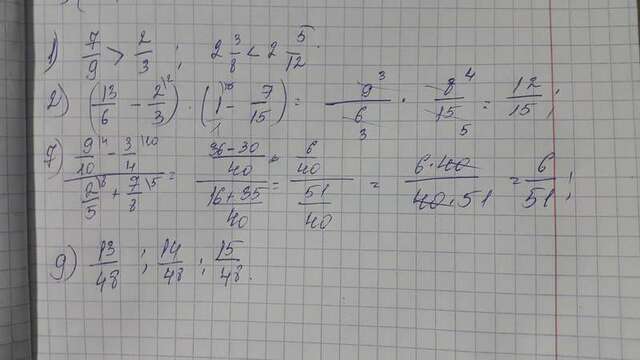 1) 7/9 > 2/3 ; 2 3/8 < 2 5/12.
2) (13/6 - 2/3 \2) · (1 \15 - 7/15) = 9 3/6 3 · 8 4/15 5 = 12/15 ;
7) (9/10 \4 - 3/4 \10)/(2/5 \8 + 7/8 \5) = ((36-30)/40)/((16+35)/40) = (6/40)/(51/40) = (6·40)/(40·51) = 6/51 ;
9) 13/48 ; 14/48 ; 15/48.